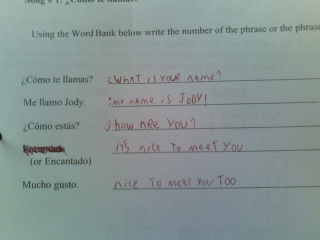 Song # 1: ¿Cómo te llamas?
Using the Word Bank below write the number of the phrase or the phrase
¿Cómo te llamas? ¿What is your name?
Me llamo Jody. ¡my name is JODY!
¿Cómo estás? ¿how are you?
it's nice to meet you
(or Encantado)
Mucho gusto. nice to meet you too